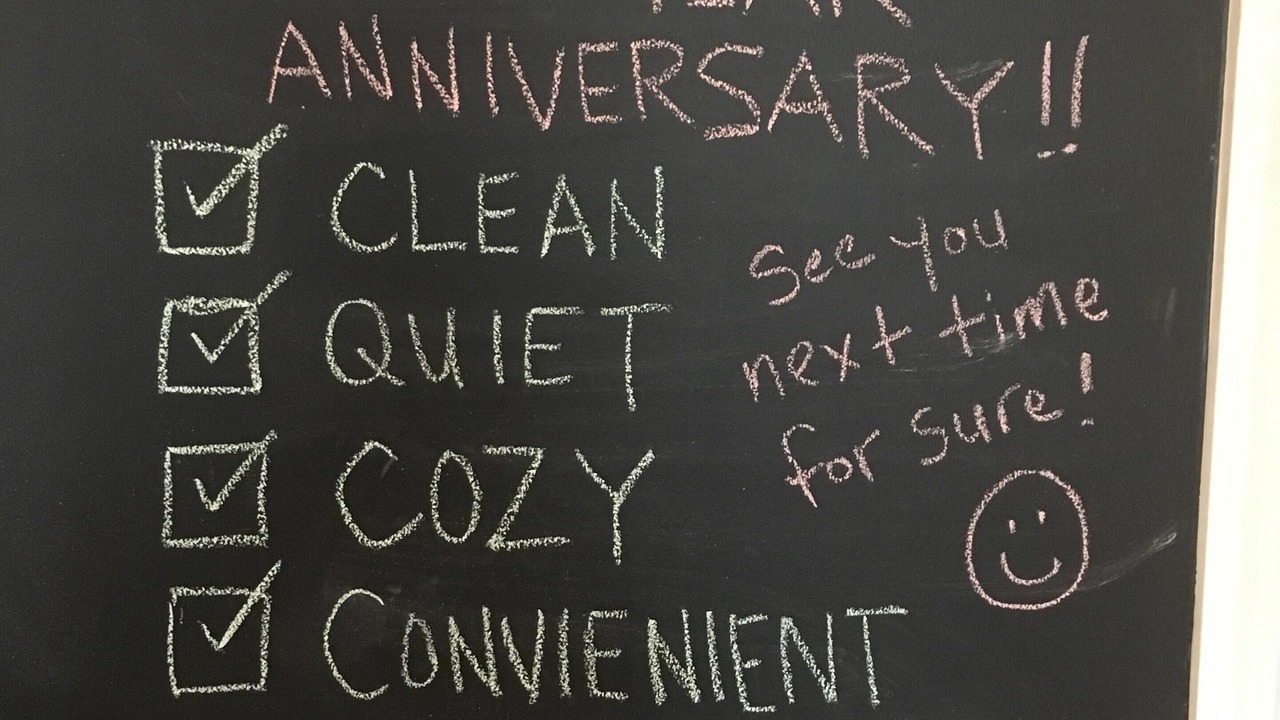 YEAR
ANNIVERSARY!!
CLEAN
QUIET
COZY
CONVIENIENT
See you
next time
for sure!